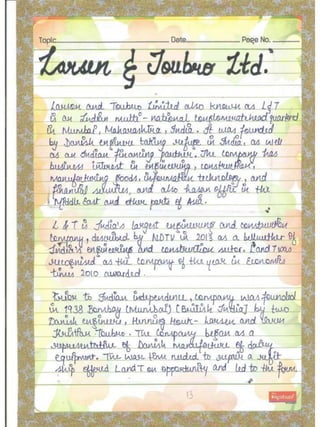 Topic Date Page No.
Larsen & Toubro Ltd.
Larson and Toubro Limited also known as L&T
is an Indian multi-national conglomerate headquartered
in Mumbai, Maharashtra, India. It was founded
by Danish engineers taking refuge in India, as well
as an Indian financing partner. The company has
business interest in engineering, construction,
manufactoring goods, information technology, and
financial services, and also has an office in the
Middle East and other parts of Asia.
L & T is India's largest engineering and construction
company, described by NDTV in 2013 as a bellwether of
India's engineering and construction sector. L and T was
recognised as the company of the year in Economic
times 2010 awarded.
Prior to Indian independence, company was founded
in 1938 Bombay (Mumbai) [British India] by two
Danish engineers, Henning Houk-Larsen and Soren
Kristian Toubro. The company began as a
representative of Danish manufacture of dairy
equipment. The was time needed to repair & refit
ship offered L and T an opportunity and led to the form
13